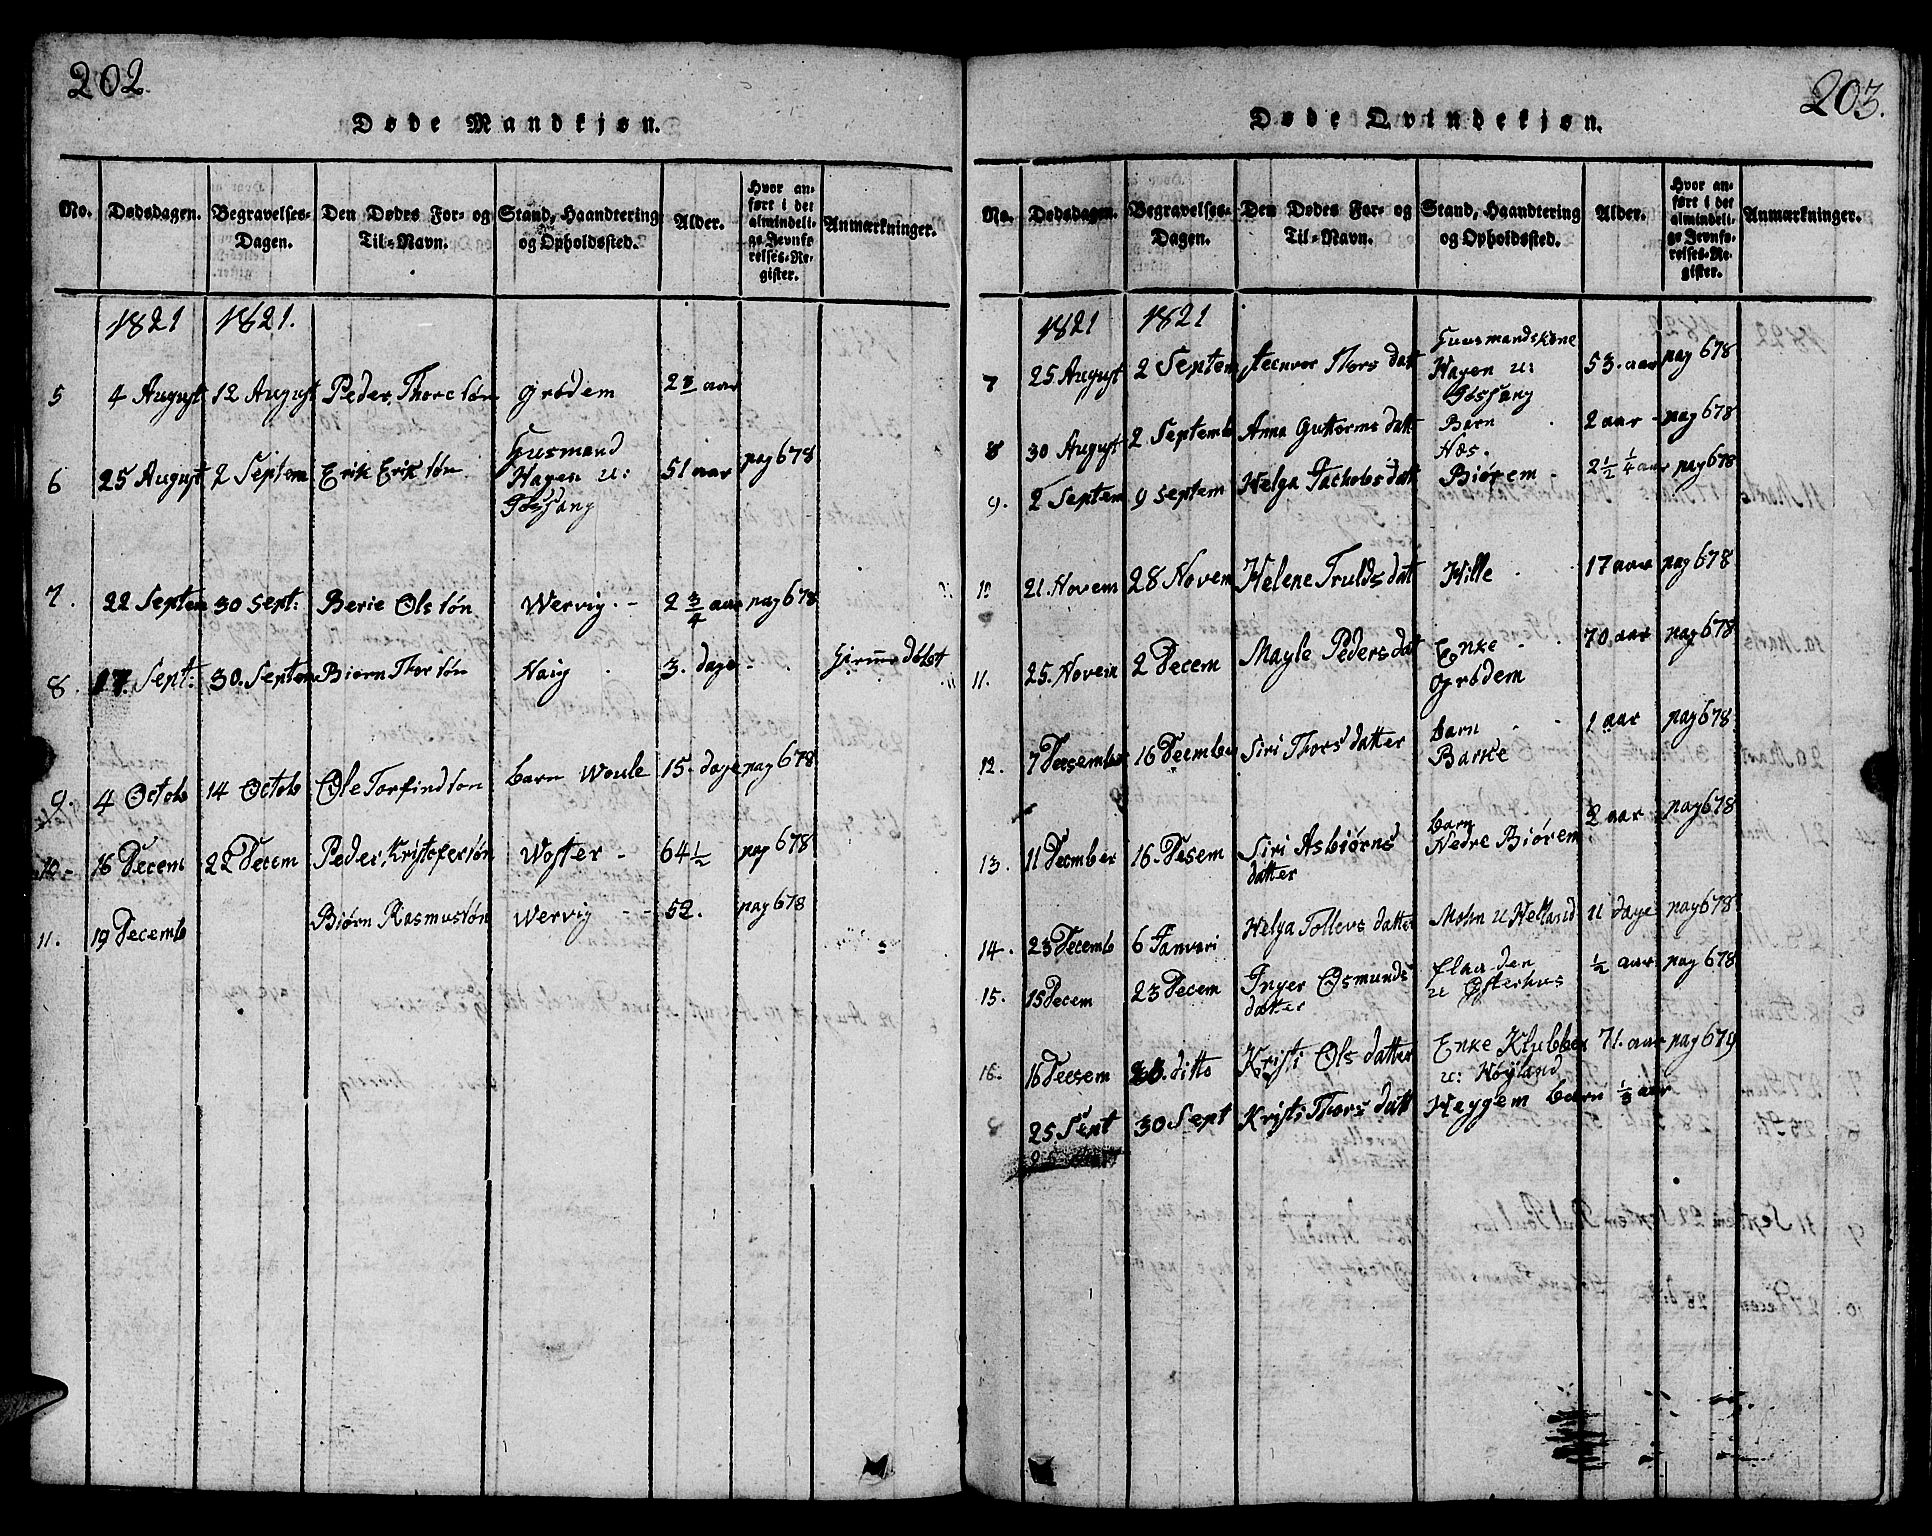 202.
Døde Mandkjøn.
No. Dødsdagen. Begravelses-Dagen. Den Dødes For- og Til-Navn. Stand, Haandtering og Opholdssted. Alder. Hvor anført i det almindelige Jevnførelses-Register. Anmærkninger.
1821 1821.
5 4 August 12 August Peder Thoresøn Grødem aar
6 25 August 2 Septem Erik Eriksøn Husmand Hagen u: Gossang 51 aar pag 678
7. 22 Septem 30 Sept: Berie Olssøn Wervig - 2 3/4 aar pag 678
8. 17. Sept: 30. Septem Biørn Thorsøn Haig 3. dage - Hiemmedøbt
9. 4 Octob 14 Octob Ole Torfindsøn barn Woule 15. dage pag 678
10 - 16 Decem 22 Decem Peder Kristofersøn Woster - 64 1/2 pag 678
11. 19 Decemb Biørn Rasmussøn Wervig - - 52. pag 678
203.
Døde Qvindekjøn.
No. Dødsdagen. Begravelses-Dagen. Den Dødes For- og Til-Navn. Stand, Haandtering og Opholdssted. Alder. Hvor anført i det almindelige Jevnførelses-Register. Anmærkninger.
1821 1821
7 25 August 2 Septem Steenvor Thors datt Huusmandskone Hagen u: Gossang 53. aar pag 678
8 30 August 2 Septemb Anna Guttorms datt Barn Næs. 2 aar - pag 678
9. 2 Septem 9 Septem Helga Jachobs datt Biørem - 2 1/2 1/4 aar pag 678
10 21. Novem 28 Novem Helene Trulds dat Hille 17 aar pag 678
11. 25. Novem 2 Decem Mayle Peders dat Enke Grødem 70 aar pag 678
12. 7 Decsember 16 December Siri Thors datter barn Barke 1 aar pag 678
13. 11 December 16. Desem Siri Asbiørns datter barn Nedre Biørem 2 aar pag 678
14. 23 Decemb 6 Januari Helga Tollevs datter Mohn u Helland 11 dage pag 678
15. 15 Decem 23 Decem Inger Osmunds datter Flaaden u Østerhus 1/2 aar pag 678
16. 16 Decsem 28. ditto Kristi Ols datter Enke Klubben u: Høyland 71. aar pag 679
25. Sent 30 Sept Kristi Thors datt Heggem barn 1/3 aar